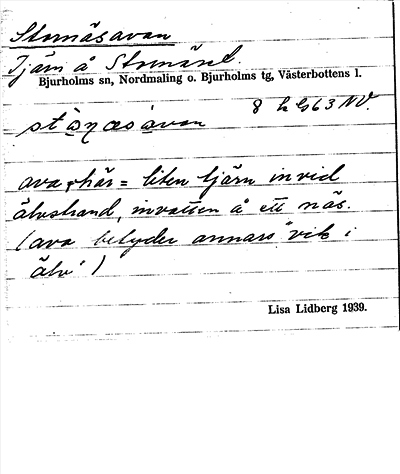 Stornäsavan
Tjärn å Stornäset.
Bjurholms sn, Nordmaling o. Bjurholms tg, Västerbottens l.
8 h G63 NV.
ava, här = liten tjärn invid
älvstrand, invatten å ett näs.
(ava betyder annars "vik i
älv")
Lisa Lidberg 1939.